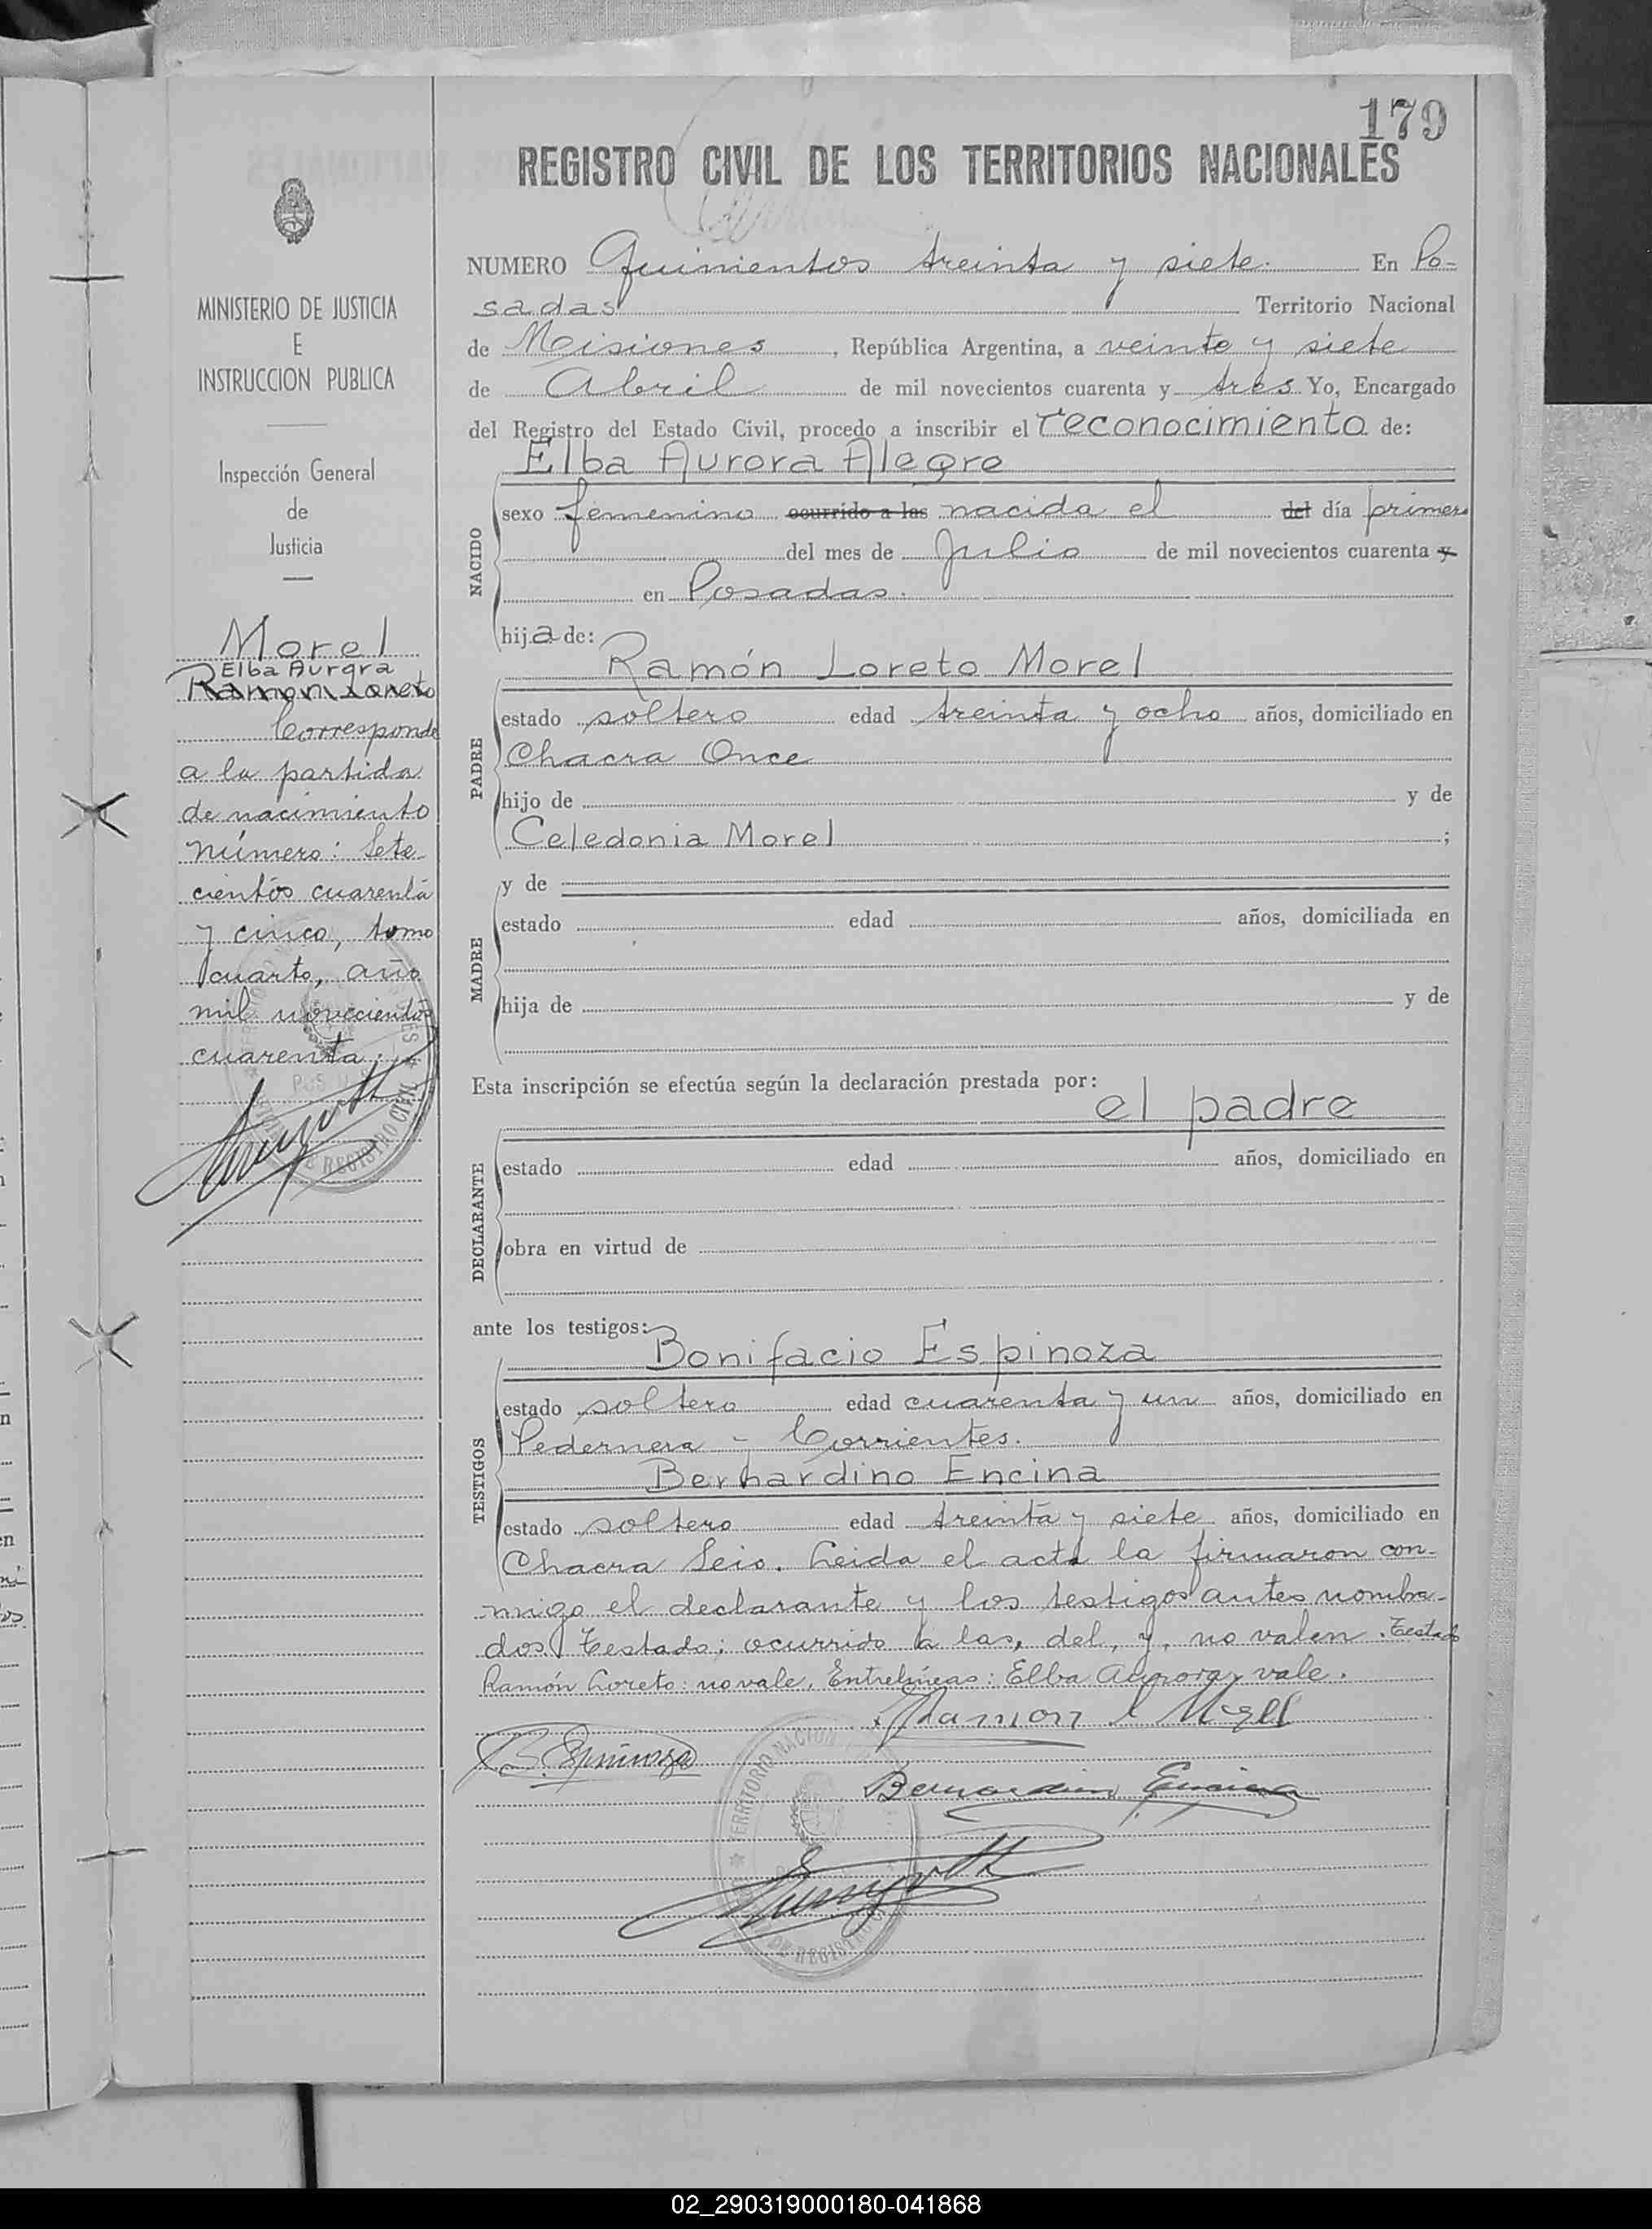 179
REGISTRO CIVIL DE LOS TERRITORIOS NACIONALES
MINISTERIO DE JUSTICIA
E
INSTRUCCION PUBLICA
Inspección General
de
Justicia
Morel
Elba Aurora
Ramón Loreto
Corresponde
a la partida
de nacimiento
número: Sete
cientos cuarenta
y cinco, tomo
cuarto, año
mil novecientos
cuarenta.
NUMERO Quinientos treinta y siete. En Po-
sadas Territorio Nacional
de Misiones, República Argentina, a veinte y siete
de Abril de mil novecientos cuarenta y tres Yo, Encargado
del Registro del Estado Civil, procedo a inscribir el reconocimiento de:
Elba Aurora Alegre
NACIDO
sexo femenino ocurrido a las nacida el del día primero
del mes de Julio de mil novecientos cuarenta y
en Posadas.
hija de:
Ramón Loreto Morel
PADRE
estado soltero edad treinta y ocho años, domiciliado en
Chacra Once
hijo de y de
Celedonia Morel ;
y de
MADRE
estado edad años, domiciliada en
hija de y de
Esta inscripción se efectúa según la declaración prestada por:
el padre
DECLARANTE
estado edad años, domiciliado en
obra en virtud de
ante los testigos:
Bonifacio Espinoza
TESTIGOS
estado soltero edad cuarenta y un años, domiciliado en
Pedernera - Corrientes.
Bernardino Encina
estado soltero edad treinta y siete años, domiciliado en
Chacra Seis. Leida el acta la firmaron con-
migo el declarante y los testigos antes nombra-
dos. Testado: ocurrido a las, del, y, no valen. Testado
Ramón Loreto: no vale. Entrelíneas: Elba Aurora, vale.
Ramon L Morel
B. Espinoza
Bernardino Encina
TERRITORIO NACION
DE REGISTRO
REGISTRO CIVIL
02_290319000180-041868